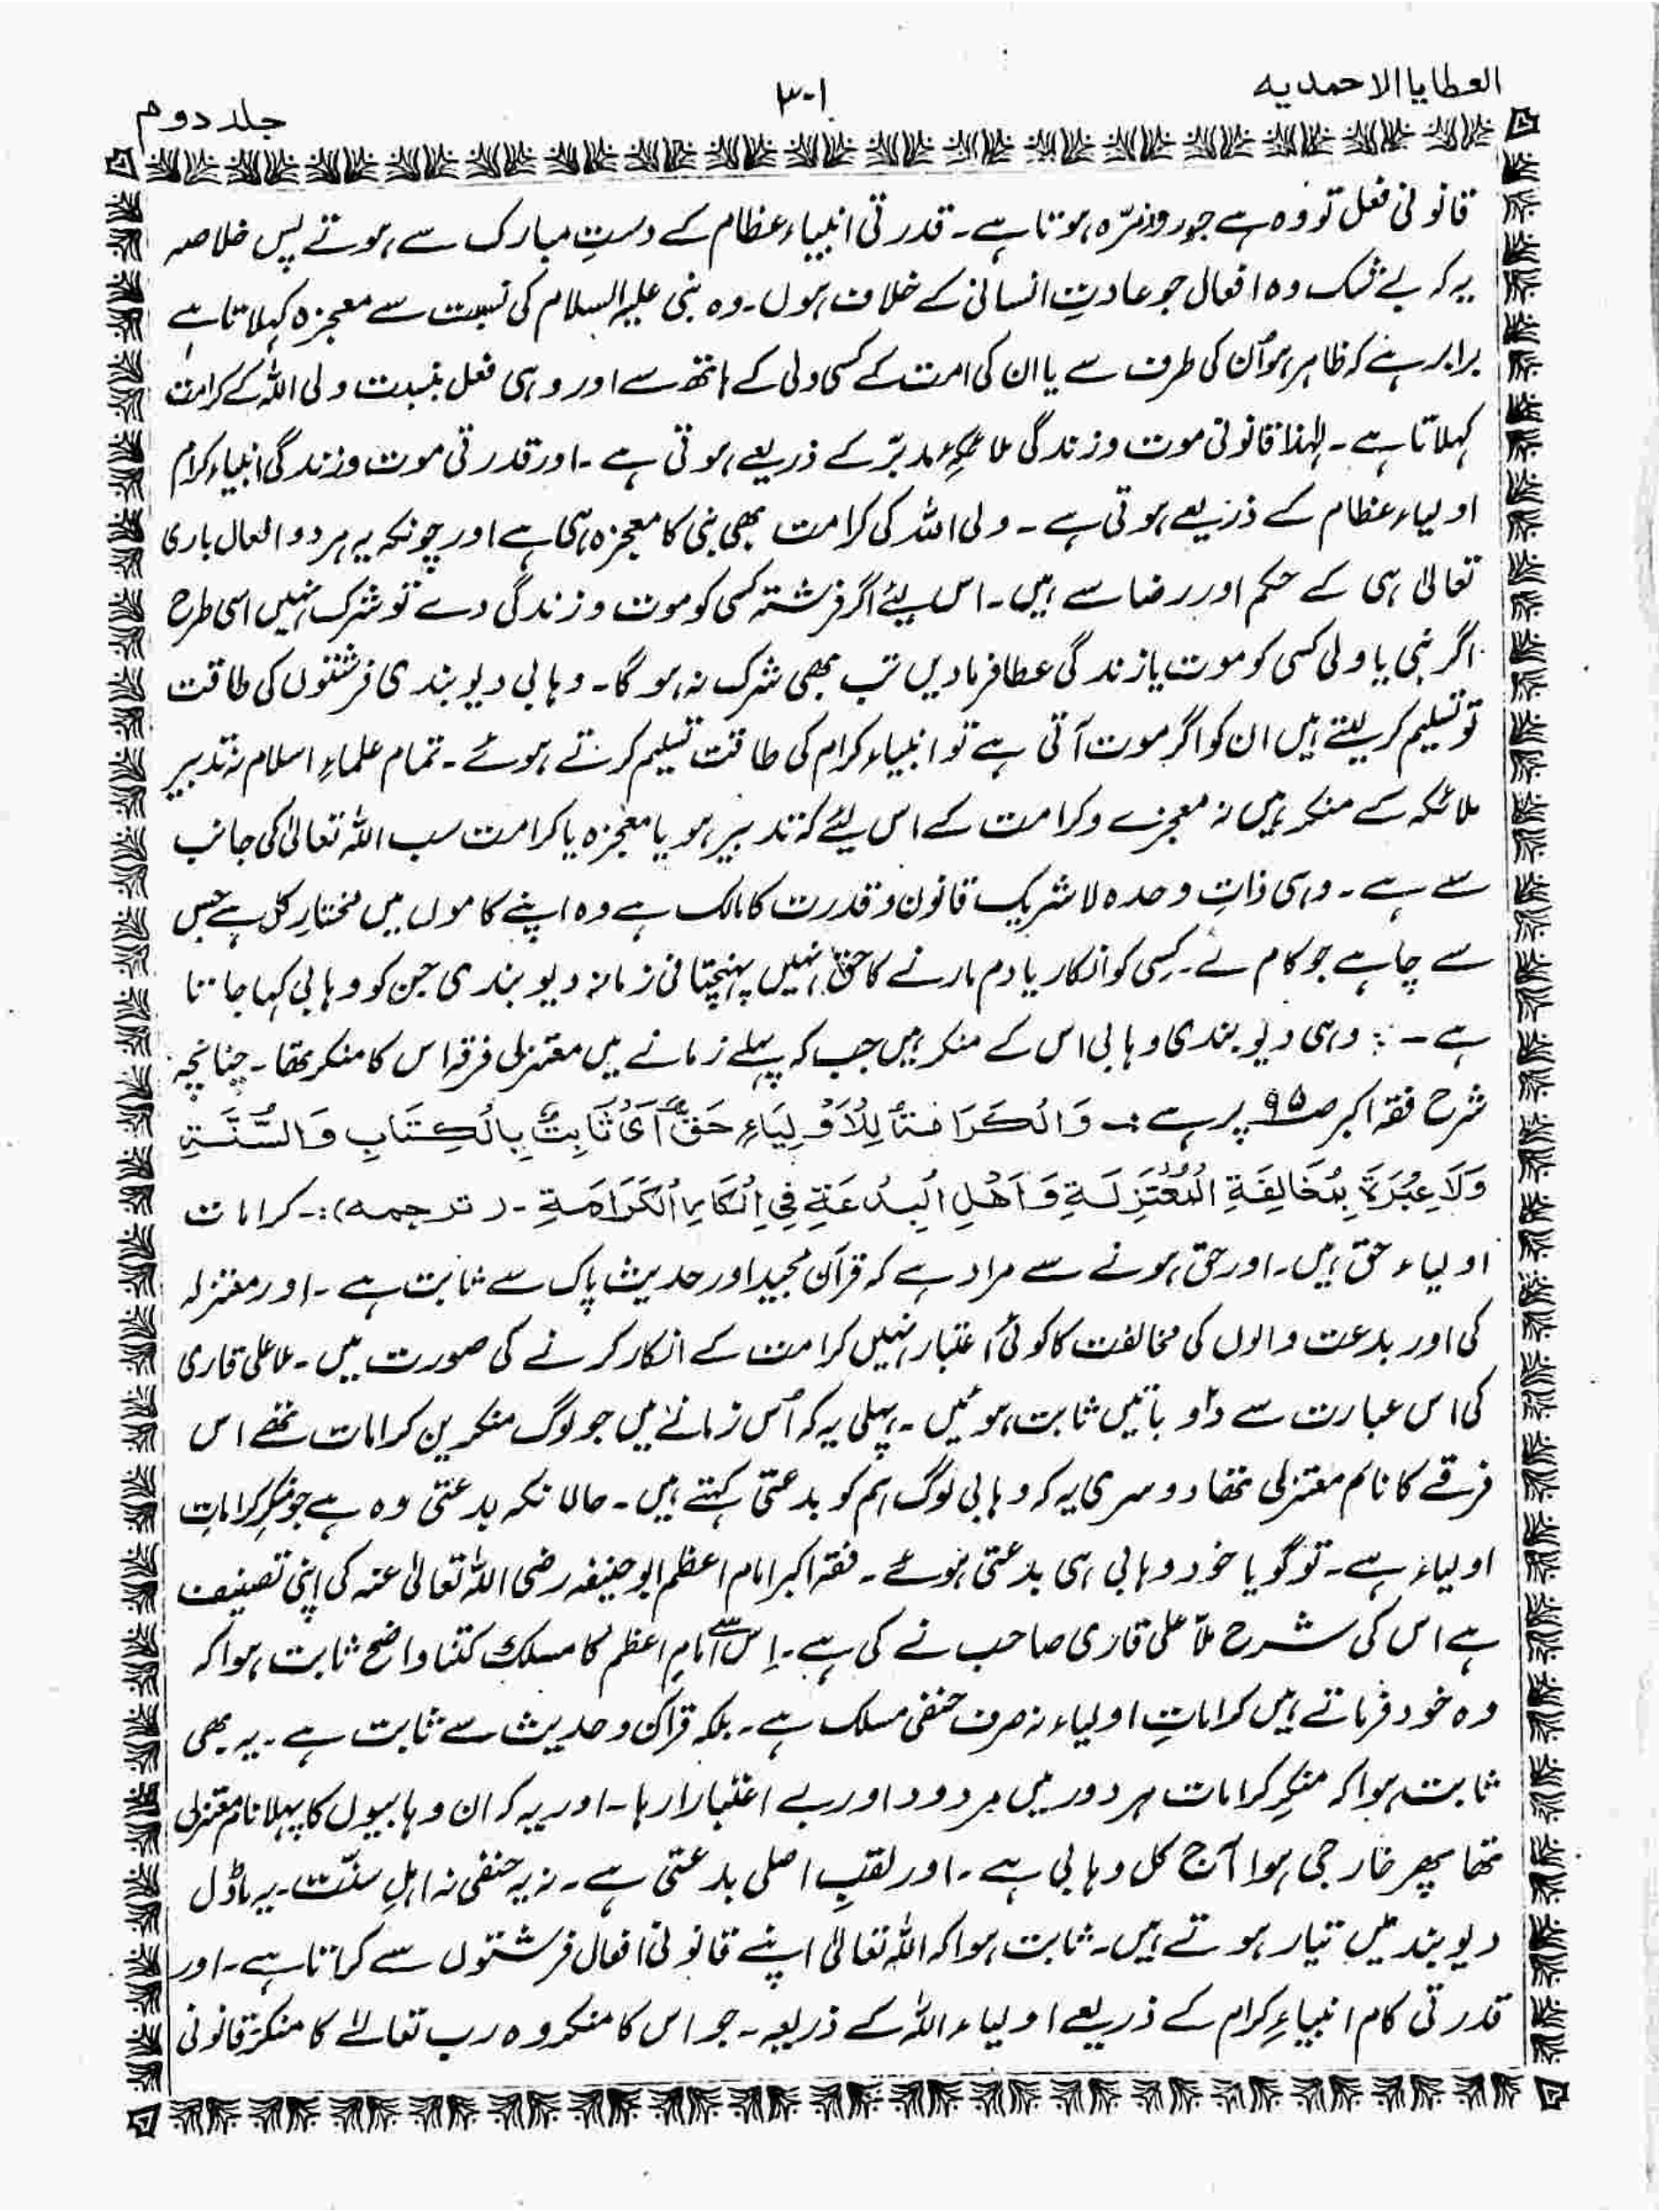 العطایا الاحمدیه
۳۰۱
جلد دوم
قانونی فعل تو وہ ہے جو روزمرّہ ہوتا ہے۔ قدرتی انبیاء عظام کے دستِ مبارک سے ہوتے پس خلاصہ
یہ کہ بے شک وہ افعال جو عادتِ انسانی کے خلاف ہوں۔ وہ نبی علیہ السلام کی نسبت سے معجزہ کہلاتا ہے
برابر ہے کہ ظاہر ہو اُن کی طرف سے یا ان کی امت کے کسی ولی کے ہاتھ سے اور وہی فعل بنسبت ولی اللہ کے کرامت
کہلاتا ہے۔ لہٰذا قانونی موت و زندگی ملائکہء مدبّر کے ذریعے ہوتی ہے۔ اور قدرتی موت و زندگی انبیاء کرام
اولیاء عظام کے ذریعے ہوتی ہے۔ ولی اللہ کی کرامت بھی نبی کا معجزہ ہی ہے اور چونکہ یہ ہر دو افعال باری
تعالیٰ ہی کے حکم اور رضا سے ہیں۔ اس لیئے اگر فرشتہ کسی کو موت و زندگی دے تو شرک نہیں اسی طرح
اگر نبی یا ولی کسی کو موت یا زندگی عطا فرمادیں تب بھی شرک نہ ہو گا۔ وہابی دیوبندی فرشتوں کی طاقت
تو تسلیم کر لیتے ہیں ان کو اگر موت آتی ہے تو انبیاء کرام کی طاقت تسلیم کرتے ہوئے۔ تمام علماءِ اسلام نہ تدبیر
ملائکہ کے منکر ہیں نہ معجزے و کرامت کے اس لیئے کہ تدبیر ہو یا معجزہ یا کرامت سب اللہ تعالیٰ کی جانب
سے ہے۔ وہی ذاتِ وحدہ لا شریک قانون و قدرت کا مالک ہے وہ اپنے کاموں میں مختارِ کل ہے جس
سے چاہے جو کام لے۔ کسی کو انکار یا دم مارنے کا حق نہیں پہنچتا فی زمانہ دیوبندی جن کو وہابی کہا جاتا
ہے ۔: وہی دیوبندی وہابی اس کے منکر ہیں جب کہ پہلے زمانے میں معتزلی فرقہ اس کا منکر تھا۔ چنانچہ
شرح فقہ اکبر صـ ۹۵ پر ہے :۔ وَالْکَرَامَۃُ لِلْاَوْلِیَاءِ حَقٌّ اَیْ ثَابِتٌ بِالْکِتَابِ وَالسُّنَّۃِ
وَلَا عِبْرَۃَ بِمُخَالِفَۃِ الْمُعْتَزِلَۃِ وَاَھْلِ الْبِدْعَۃِ فِیْ اِنْکَارِ الْکَرَامَۃِ۔ (ترجمہ):۔ کرامات
اولیاء حق ہیں۔ اور حق ہونے سے مراد ہے کہ قرآن مجید اور حدیث پاک سے ثابت ہے۔ اور معتزلہ
کی اور بدعت والوں کی مخالفت کا کوئی اعتبار نہیں کرامت کے انکار کرنے کی صورت میں۔ ملا علی قاری
کی اس عبارت سے دو باتیں ثابت ہوئیں۔ پہلی یہ کہ اُس زمانے میں جو لوگ منکرین کرامات تھے اس
فرقے کا نام معتزلی تھا دوسری یہ کہ وہابی لوگ ہم کو بدعتی کہتے ہیں۔ حالانکہ بدعتی وہ ہے جو منکرِ کراماتِ
اولیاء ہے۔ تو گویا خود وہابی ہی بدعتی ہوئے۔ فقہ اکبر امام اعظم ابو حنیفہ رضی اللہ تعالیٰ عنہ کی اپنی تصنیف
ہے اس کی شرح ملاّ علی قاری صاحب نے کی ہے۔ اِس سے امامِ اعظم کا مسلک کتنا واضح ثابت ہوا کہ
وہ خود فرماتے ہیں کراماتِ اولیاء نہ صرف حنفی مسلک ہے۔ بلکہ قرآن و حدیث سے ثابت ہے۔ یہ بھی
ثابت ہوا کہ منکرِ کرامات ہر دور میں مردود اور بے اعتبارا رہا۔ اور یہ کہ ان وہابیوں کا پہلا نام معتزلی
تھا پھر خارجی ہوا آج کل وہابی ہے۔ اور لقبِ اصلی بدعتی ہے۔ نہ یہ حنفی نہ اہلِ سنّت۔ یہ ماڈل
دیوبند میں تیار ہوتے ہیں۔ ثابت ہوا کہ اللہ تعالیٰ اپنے قانونی افعال فرشتوں سے کراتا ہے۔ اور
قدرتی کام انبیاءِ کرام کے ذریعے اولیاء اللہ کے ذریعہ۔ جو اس کا منکر وہ رب تعالےٰ کا منکر قانونی